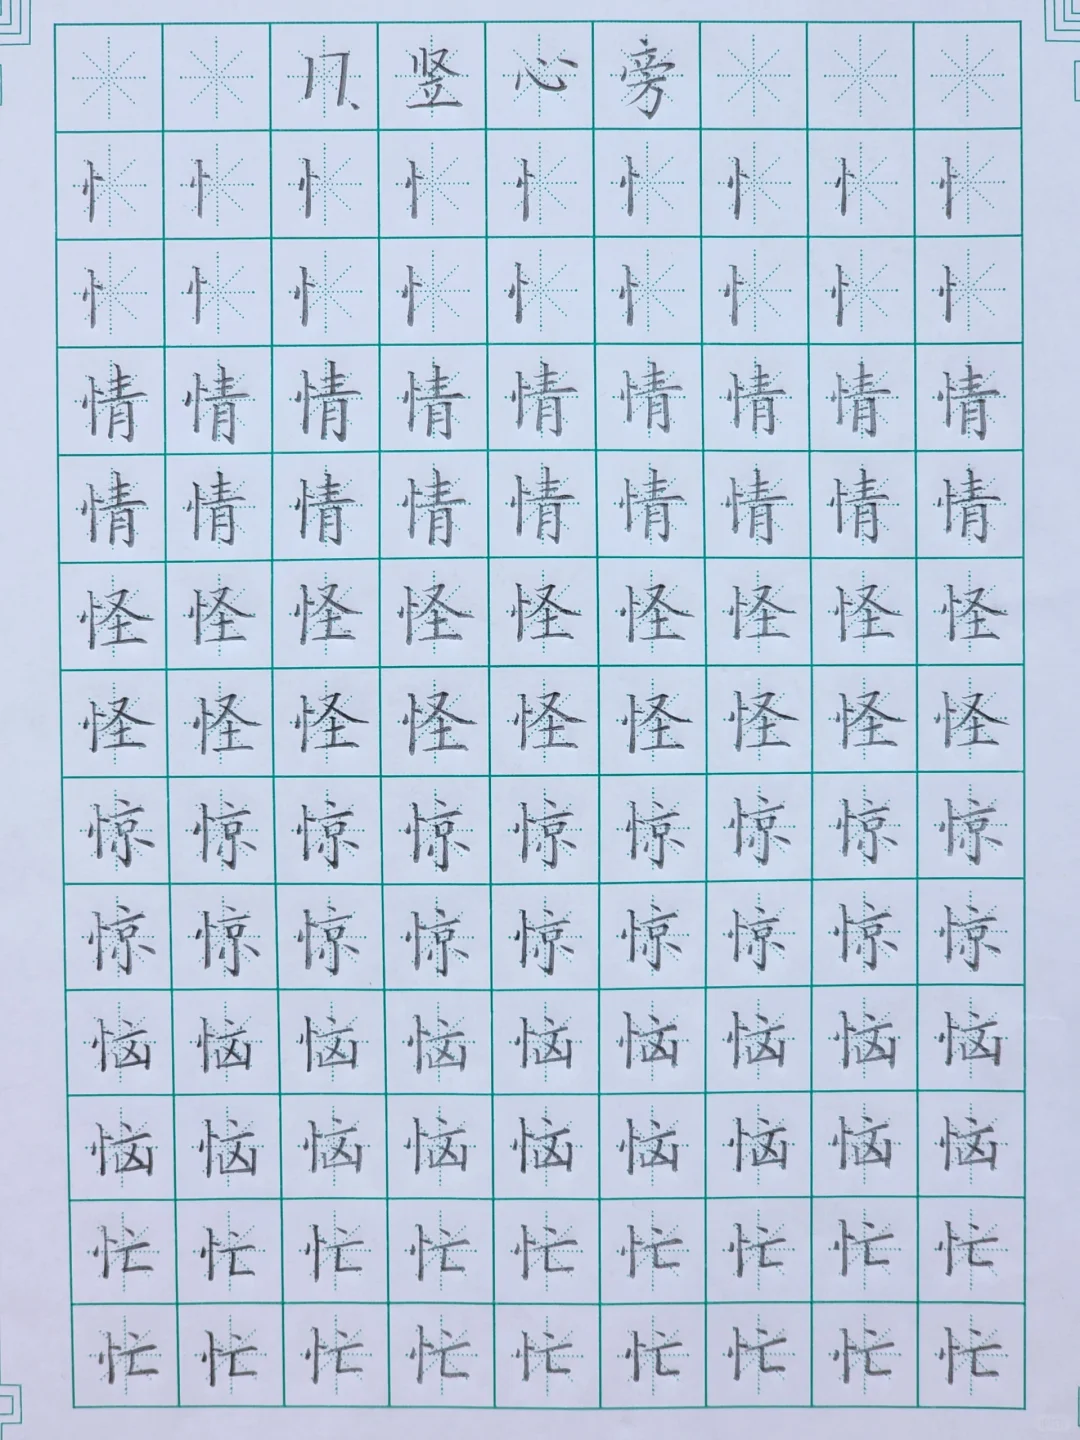 17、竖心旁
忄忄忄忄忄忄忄忄忄
忄忄忄忄忄忄忄忄忄
情情情情情情情情情
情情情情情情情情情
怪怪怪怪怪怪怪怪怪
怪怪怪怪怪怪怪怪怪
惊惊惊惊惊惊惊惊惊
惊惊惊惊惊惊惊惊惊
恼恼恼恼恼恼恼恼恼
恼恼恼恼恼恼恼恼恼
忙忙忙忙忙忙忙忙忙
忙忙忙忙忙忙忙忙忙